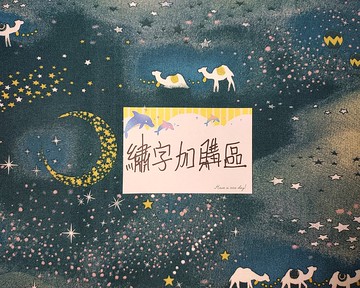 繡字加購區
Have a nice day!